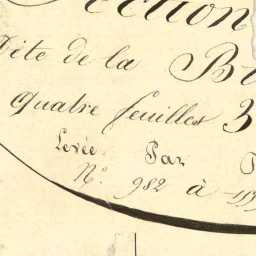 Section
Dite de la
quatre feuilles 3
Levée Par
N.º 982 à